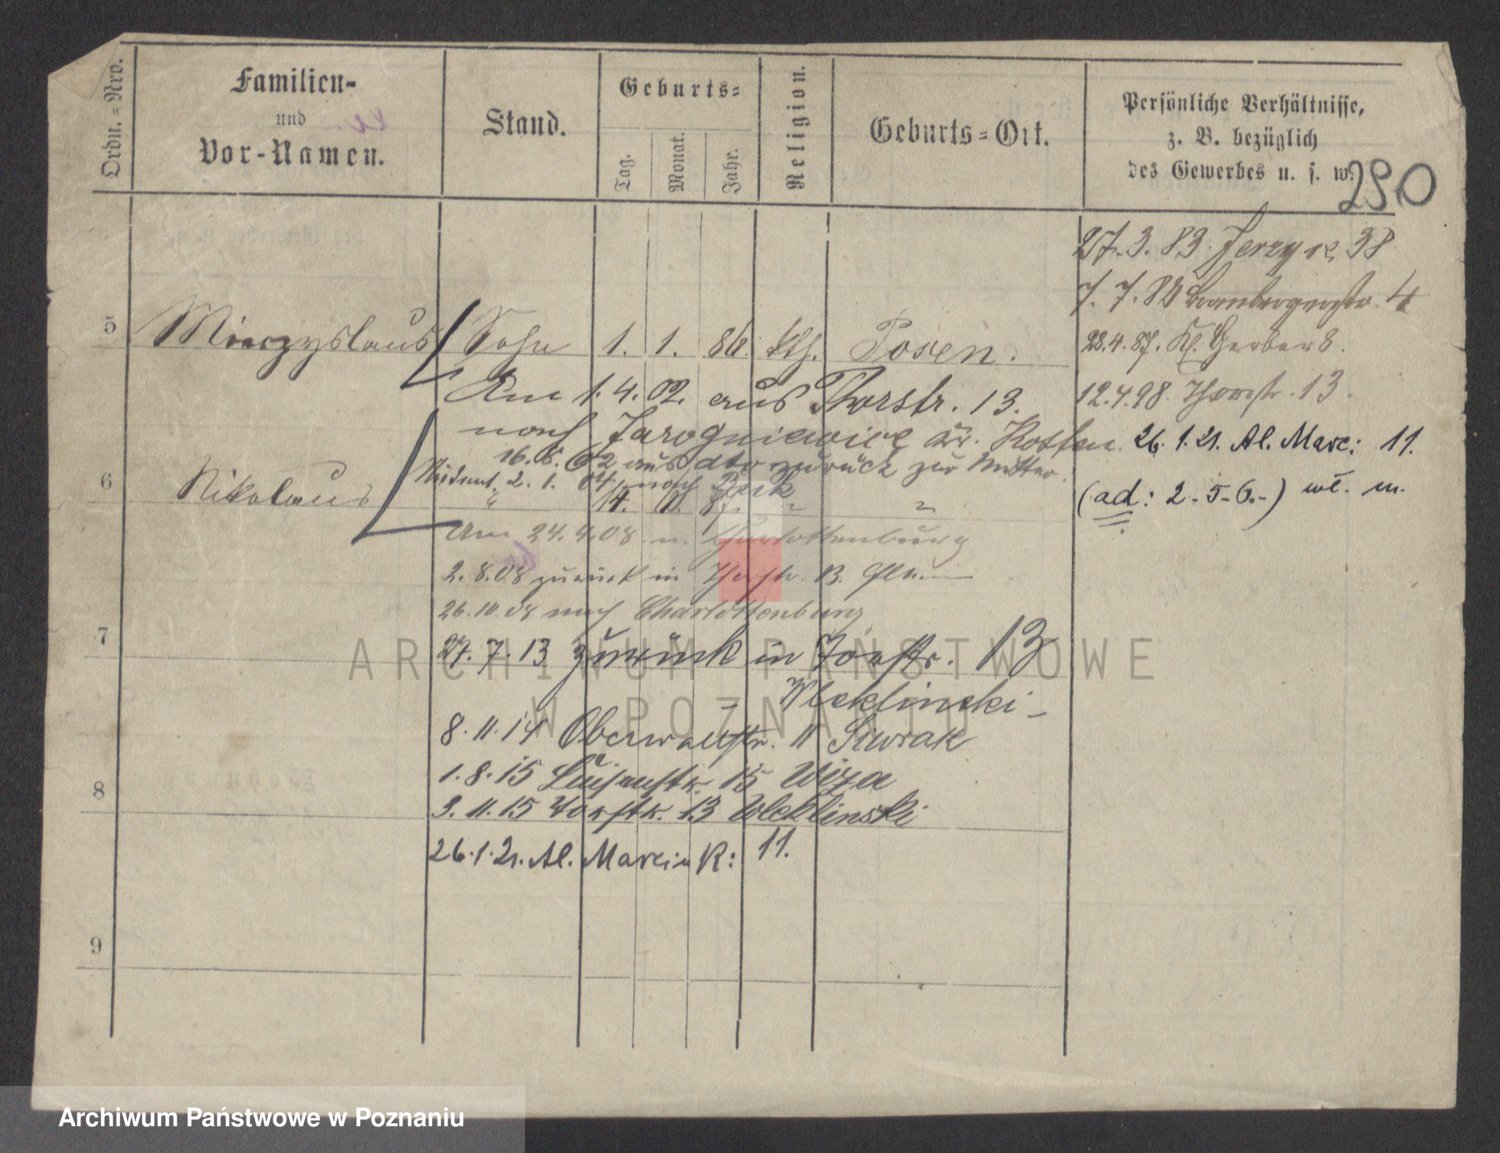 Ordn.=Nro.
Familien-
und
Vor-Namen.
Stand.
Geburts=
Tag.
Monat.
Jahr.
Religion.
Geburts=Ort.
Persönliche Verhältnisse,
z. B. bezüglich
des Gewerbes u. s. w.
290
27.3.83 Jerzyce 38
7.7.86 Brombergerstr. 4
5 Mieczyslaus Sohn 1. 1. 86 kth. Posen.
23.4.87. Kl. Gerber 8.
Am 1.4.02. aus Thorstr. 13.
12.4.98. Thorstr. 13
nach Jarogniewice Kr. Kosten
26.1.21. Al. Marc: 11.
16.5.02 aus dto zurück zur Mutter
Student. 2.1.04 nach
6 Nikolaus " 14. 11. 87. " "
(ad: 2-5-6.-) wł. m.
Am 24.4.08 n. Charlottenburg
2.8.08 zurück in Thorstr. 13.
26.10.08 nach Charlottenburg
7
27.7.13 zurück in Torstr. 13
Wleklinski-
8.11.14 Oberwallstr. 11
8
1.8.15 Luisenstr. 15 Wiza
3.11.15 Torstr. 13 Wleklinski
26.1.21. Al. Marcink: 11.
9
ARCHIWUM PAŃSTWOWE
W POZNANIU
Archiwum Państwowe w Poznaniu